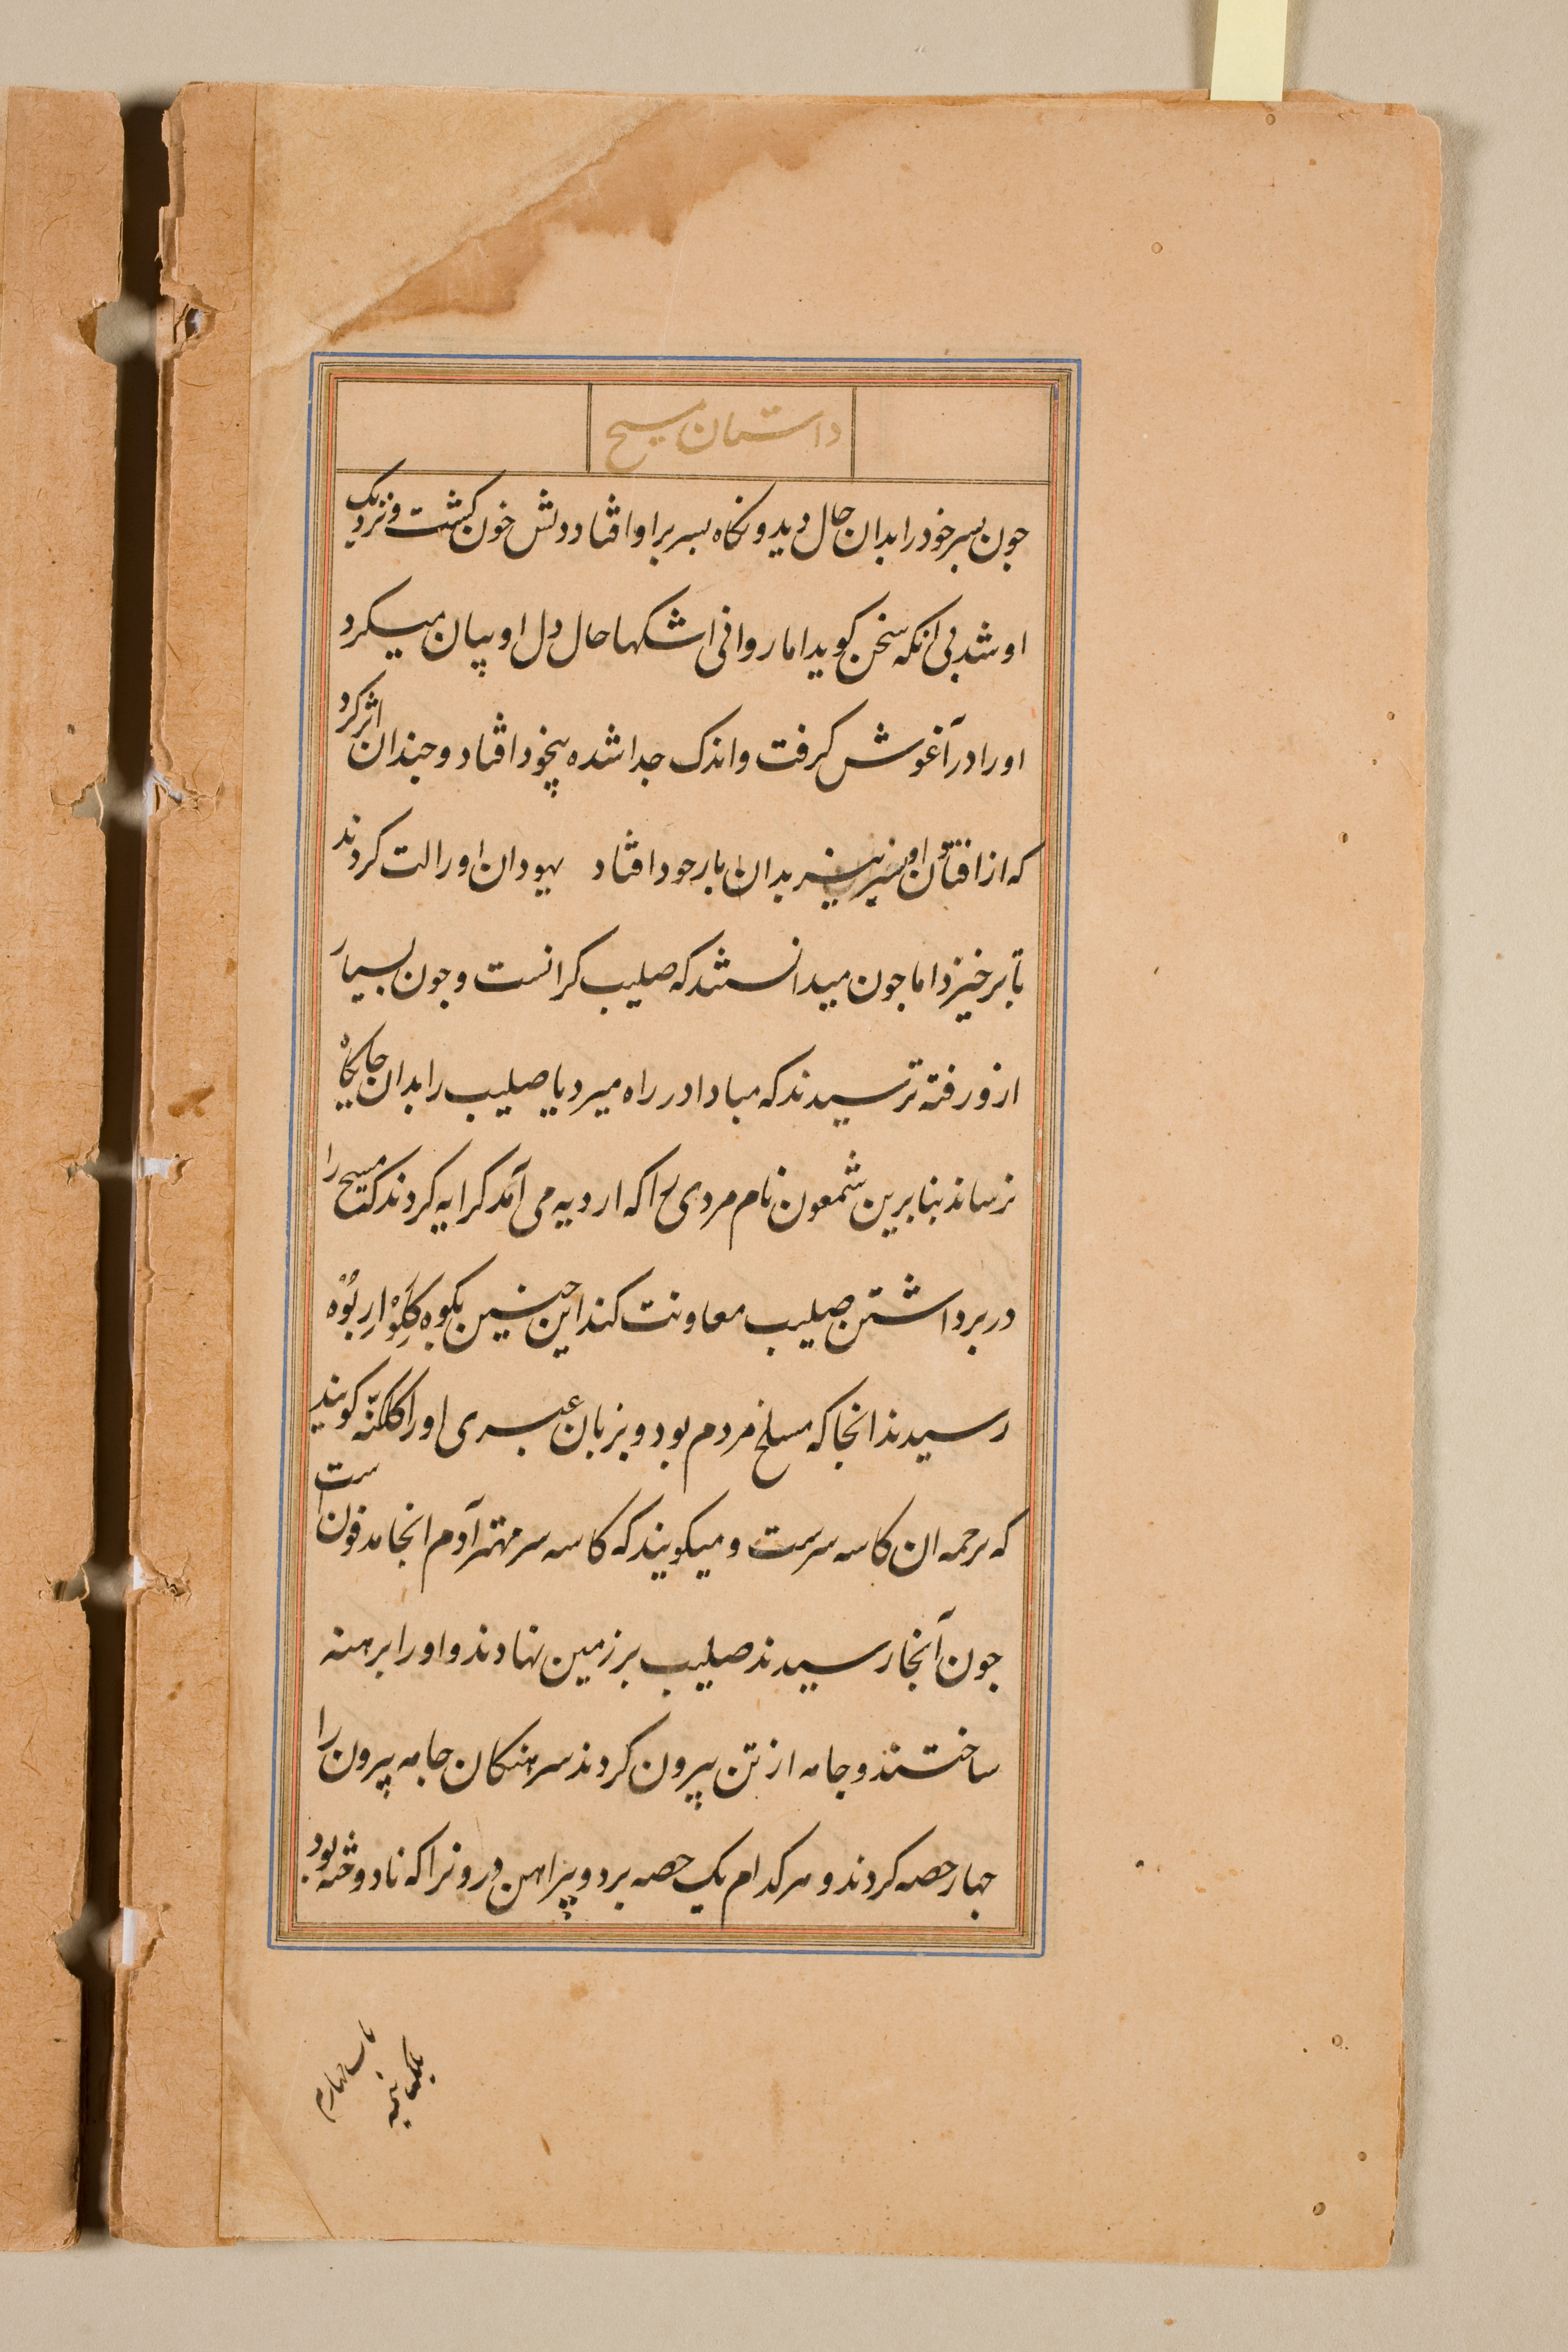 داستان مسیح
جون بسر خود را بدان حال دید و نکاه بسر براو افتاد دلش خون کشت و نزدیک
او شد بی انکه سخن کوید اما روانی اشکها حال دل او بیان میکرد
او را در آغوش کرفت و اندک جدا شده بیخود افتاد و جندان اثر کرد
که از افتادن او بسر نیز بدان بار خود افتاد یهودان او را لت کردند
تا برخیزد اما جون میدانستند که صلیب کرانست و جون بسیار
ازو رفته ترسیدند که مبادا در راه میرد یا صلیب را بدان جایکاه
نرساند بنابرین شمعون نام مردی را که از دیه می آمد کرایه کردند که مسیح را
در برداشتن صلیب معاونت کند این جنین بکوه کلواربوه
رسیدند انجا که مسلخ مردم بود و بزبان عبری او را کلکته کویند
که ترجمه ان کاسه سرست و میکویند که کاسه سر مهتر آدم انجا مدفون است
جون آنجا رسیدند صلیب بر زمین نهادند و او را برهنه
ساختند و جامه از تن بیرون کردند سرهنکان جامه بیرون را
جهار حصه کردند و هر کدام یک حصه برد و پیراهن درونرا که نادوخته بود
باب چهارم